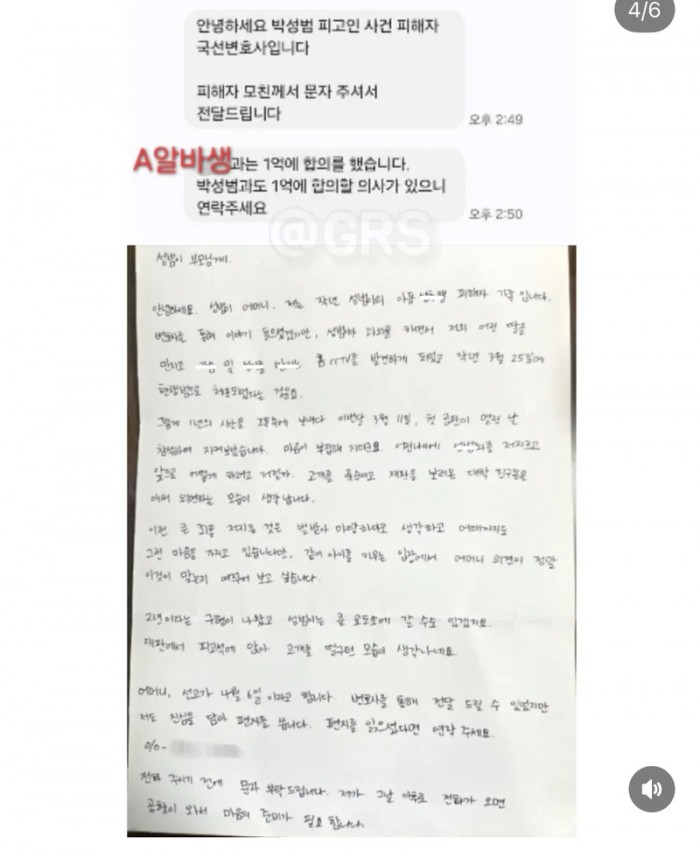 4/6
안녕하세요 박성범 피고인 사건 피해자
국선변호사입니다
피해자 모친께서 문자 주셔서
전달드립니다
오후 2:49
A알바생과는 1억에 합의를 했습니다.
박성범과도 1억에 합의할 의사가 있으니
연락주세요
오후 2:50
@GRS
성범이 부모님께.
안녕하세요. 성범이 어머니. 저는 작년 성범씨의 아동 피해자 가족입니다.
변호사를 통해 이야기 들으셨겠지만, 성범씨가 과외를 하면서 저희 어린 딸을
만지고 홈 CCTV를 발견하게 되었고 작년 3월 25일에
현행범으로 체포되었다는 것을요.
그렇게 1년의 시간을 고통속에 보내다 이번달 3월 11일, 첫 공판이 열린 날
참석하여 지켜보았습니다. 마음이 복잡해 지더군요. 어린나이에 저지르고
앞으로 어떻게 하려고 저럴까. 고개를 푹숙이고 재판을 보러온 대학 친구들을
애써 외면하는 모습이 생각납니다.
이런 큰 죄를 저지른 것은 벌받아 마땅하다고 생각하고
그런 마음을 가지고 있습니다만, 같이 아이를 키우는 입장에서 어머니 의견이 정말
이것이 맞는지 여쭈어 보고 싶습니다.
2년이라는 구형이 나왔고 성범씨는 큰 교도소에 갈 수도 있겠지요.
재판에서 피고석에 앉아 고개를 떨구던 모습이 생각나네요.
어머니, 선고가 4월 6일 이라고 합니다. 변호사를 통해 전달 드릴 수 있었지만
저도 진심을 담아 편지를 씁니다. 편지를 읽으셨다면 연락 주세요.
010-
전화 주시기 전에 문자 부탁드립니다. 제가 그날 이후로 전화가 오면
공황이 와서 마음의 준비가 필요 합니다.